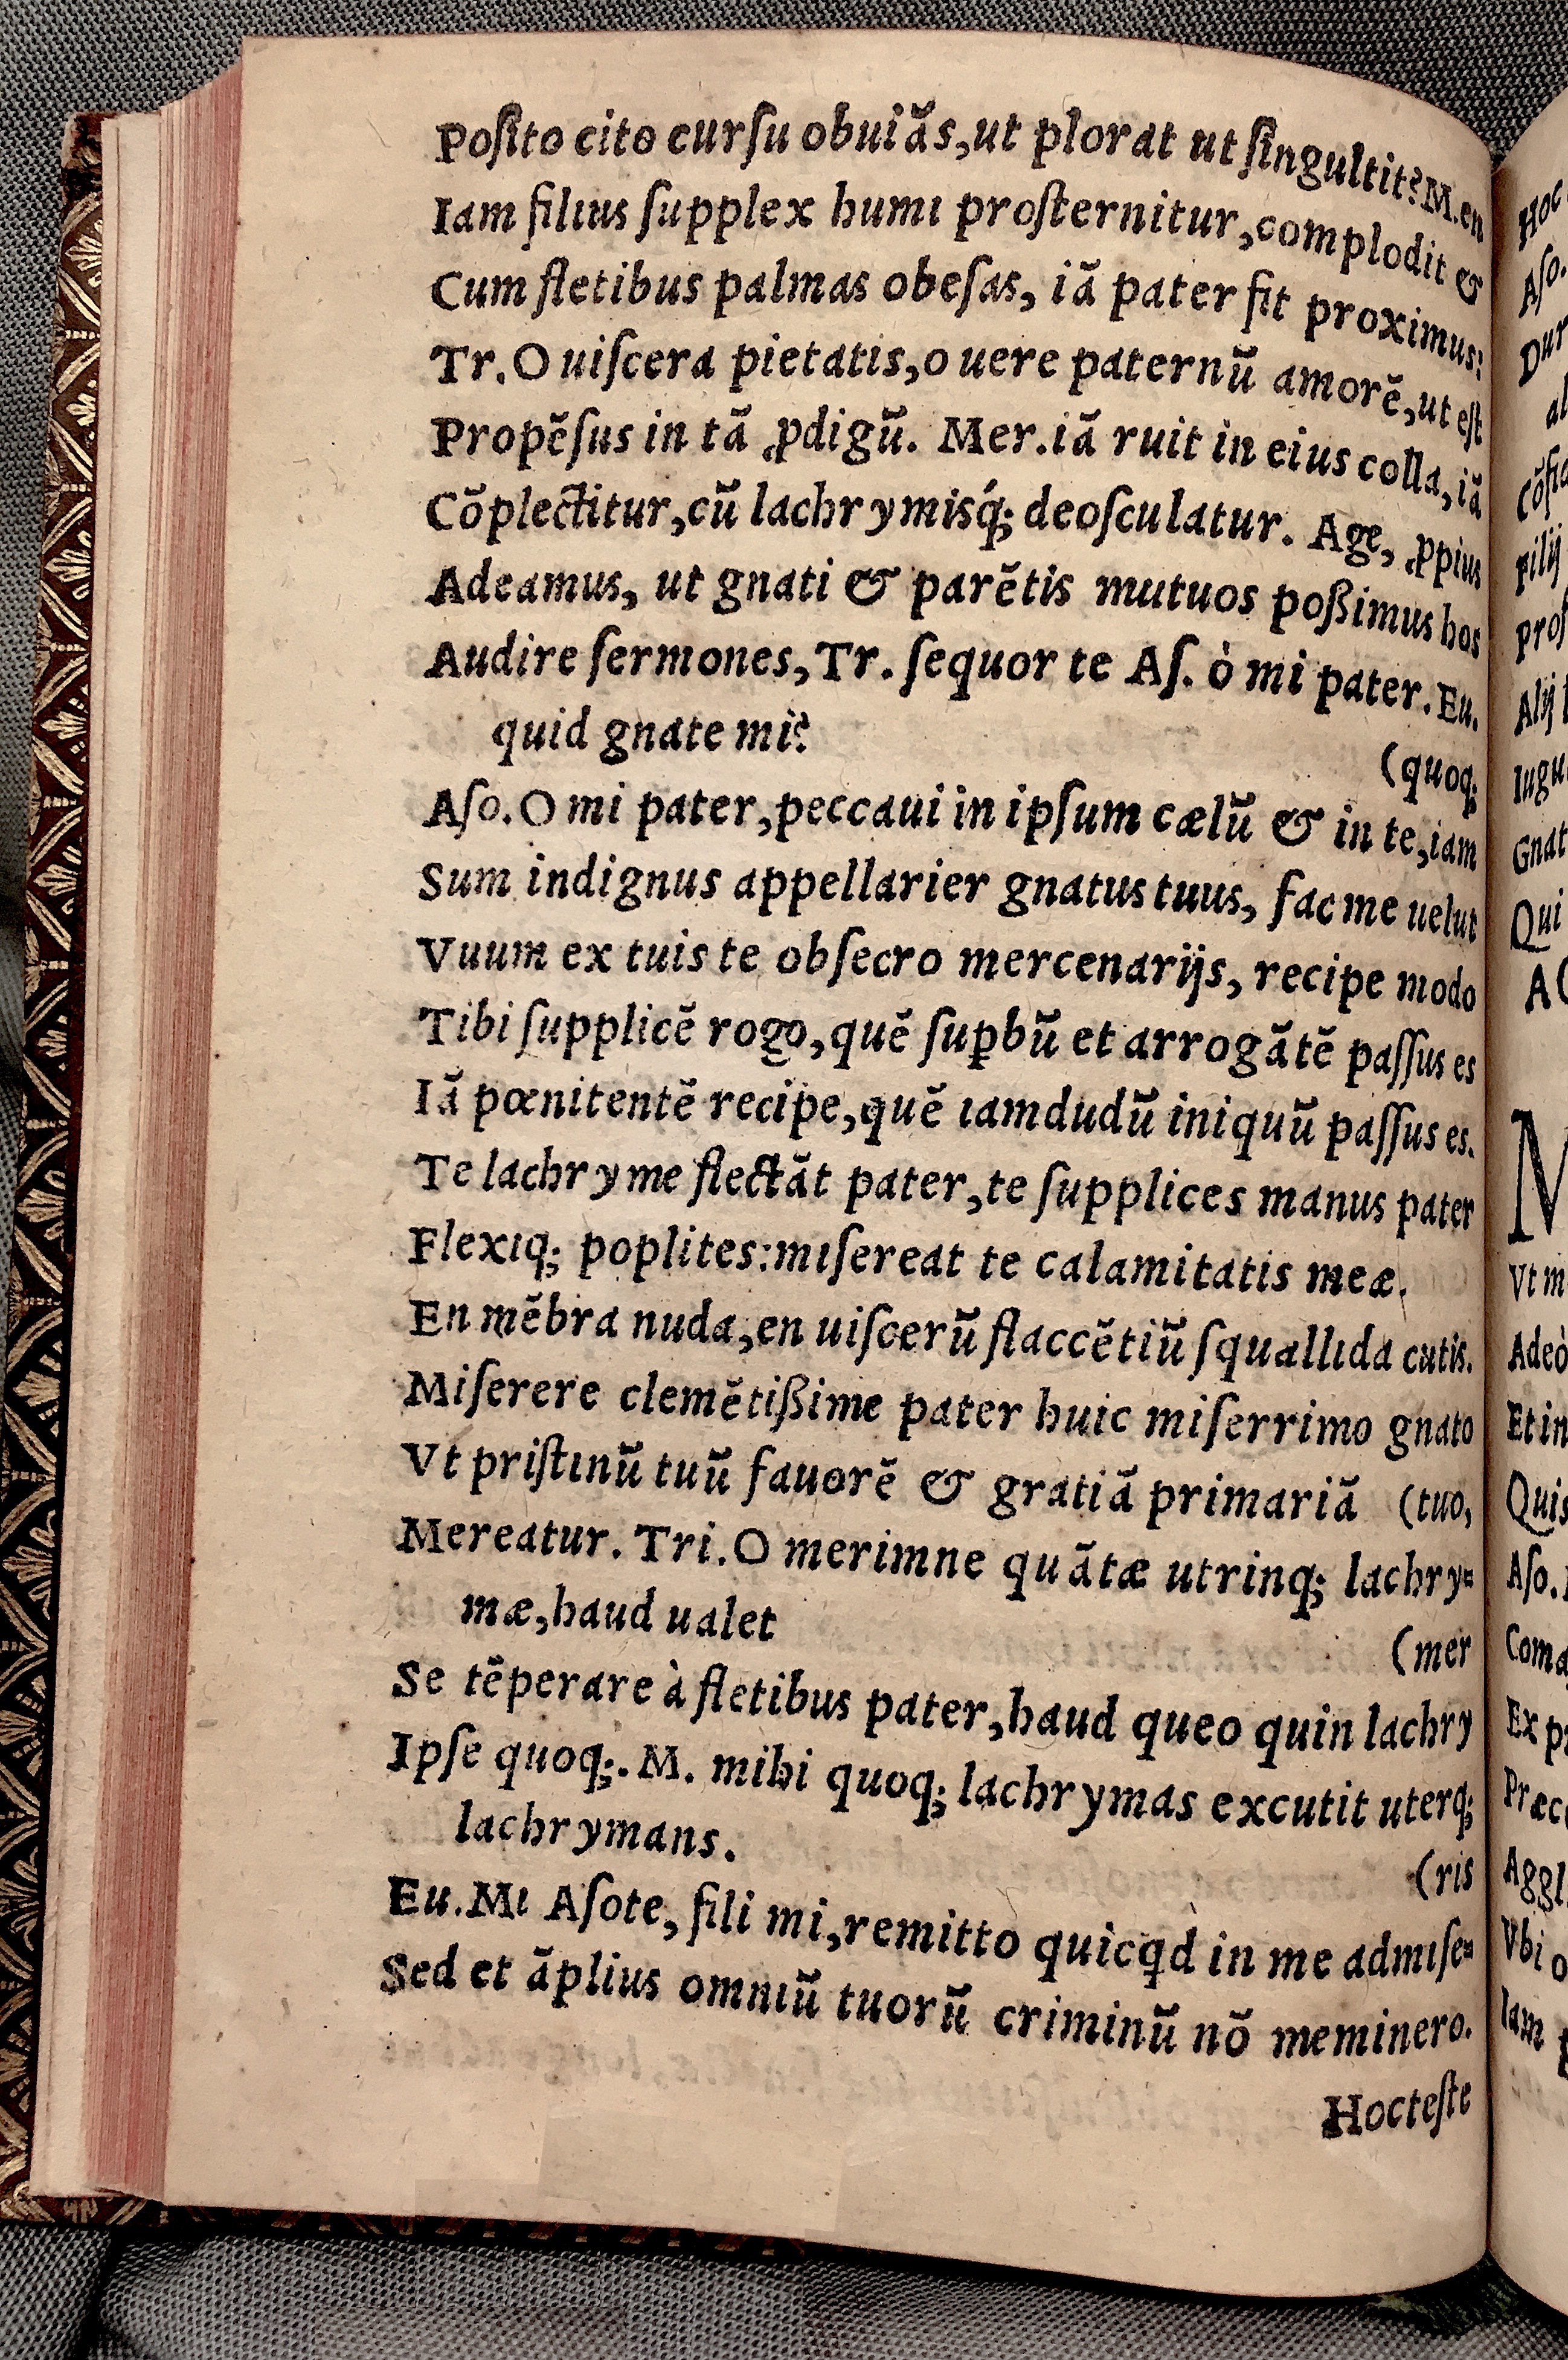 Poſito cito curſu obuiãs,ut plorat ut ſingultit?M.en
Iam filius ſupplex humi proſternitur,complodit &
Cum fletibus palmas obeſas, iã pater fit proximus:
Tr.O uiſcera pietatis,o uere paternũ amorẽ,ut eſt
Propẽſus in tã ꝓdigũ. Mer.iã ruit in eius colla,iã
Cõplectitur,cũ lachrymisq́; deoſculatur. Age, ꝓpius
Adeamus, ut gnati & parẽtis mutuos poßimus hos
Audire ſermones,Tr. ſequor te Aſ. ò mi pater.Eu.
quid gnate mi?
(quoq;
Aſo.O mi pater,peccaui in ipſum cælũ & in te,iam
Sum indignus appellarier gnatus tuus, fac me uelut
Vuum ex tuis te obſecro mercenarijs, recipe modo
Tibi ſupplicẽ rogo,quẽ ſuꝑbũ et arrogãtẽ paſſus es
Iã pœnitentẽ recipe,quẽ iamdudũ iniquũ paſſus es.
Te lachryme flectãt pater,te ſupplices manus pater
Flexiq; poplites:miſereat te calamitatis meæ.
En mẽbra nuda,en uiſcerũ flaccẽtiũ ſquallida cutis.
Miſerere clemẽtißime pater huic miſerrimo gnato
Vt priſtinũ tuũ fauorẽ & gratiã primariã (tuo,
Mereatur. Tri.O merimne quãtæ utrinq; lachry⸗
mæ,haud ualet
(mer
Se tẽperare à fletibus pater,haud queo quin lachry
Ipſe quoq;. M. mihi quoq; lachrymas excutit uterq;
lachrymans.
(ris
Eu.Mi Aſote, fili mi,remitto quicꝗd in me admiſe⸗
Sed et ãplius omniũ tuorũ criminũ nõ meminero.
Hoc teſte
Hoc
Aſo.
Dur
al
Cõſid
Filij
Proſ
Alij
Iugu
Gnat
Qui
AC
M
Vt m
Adeò
Et in
Quis
Aſo.
Coma
Ex p
Præc
Aggl
Vbi o
Iam